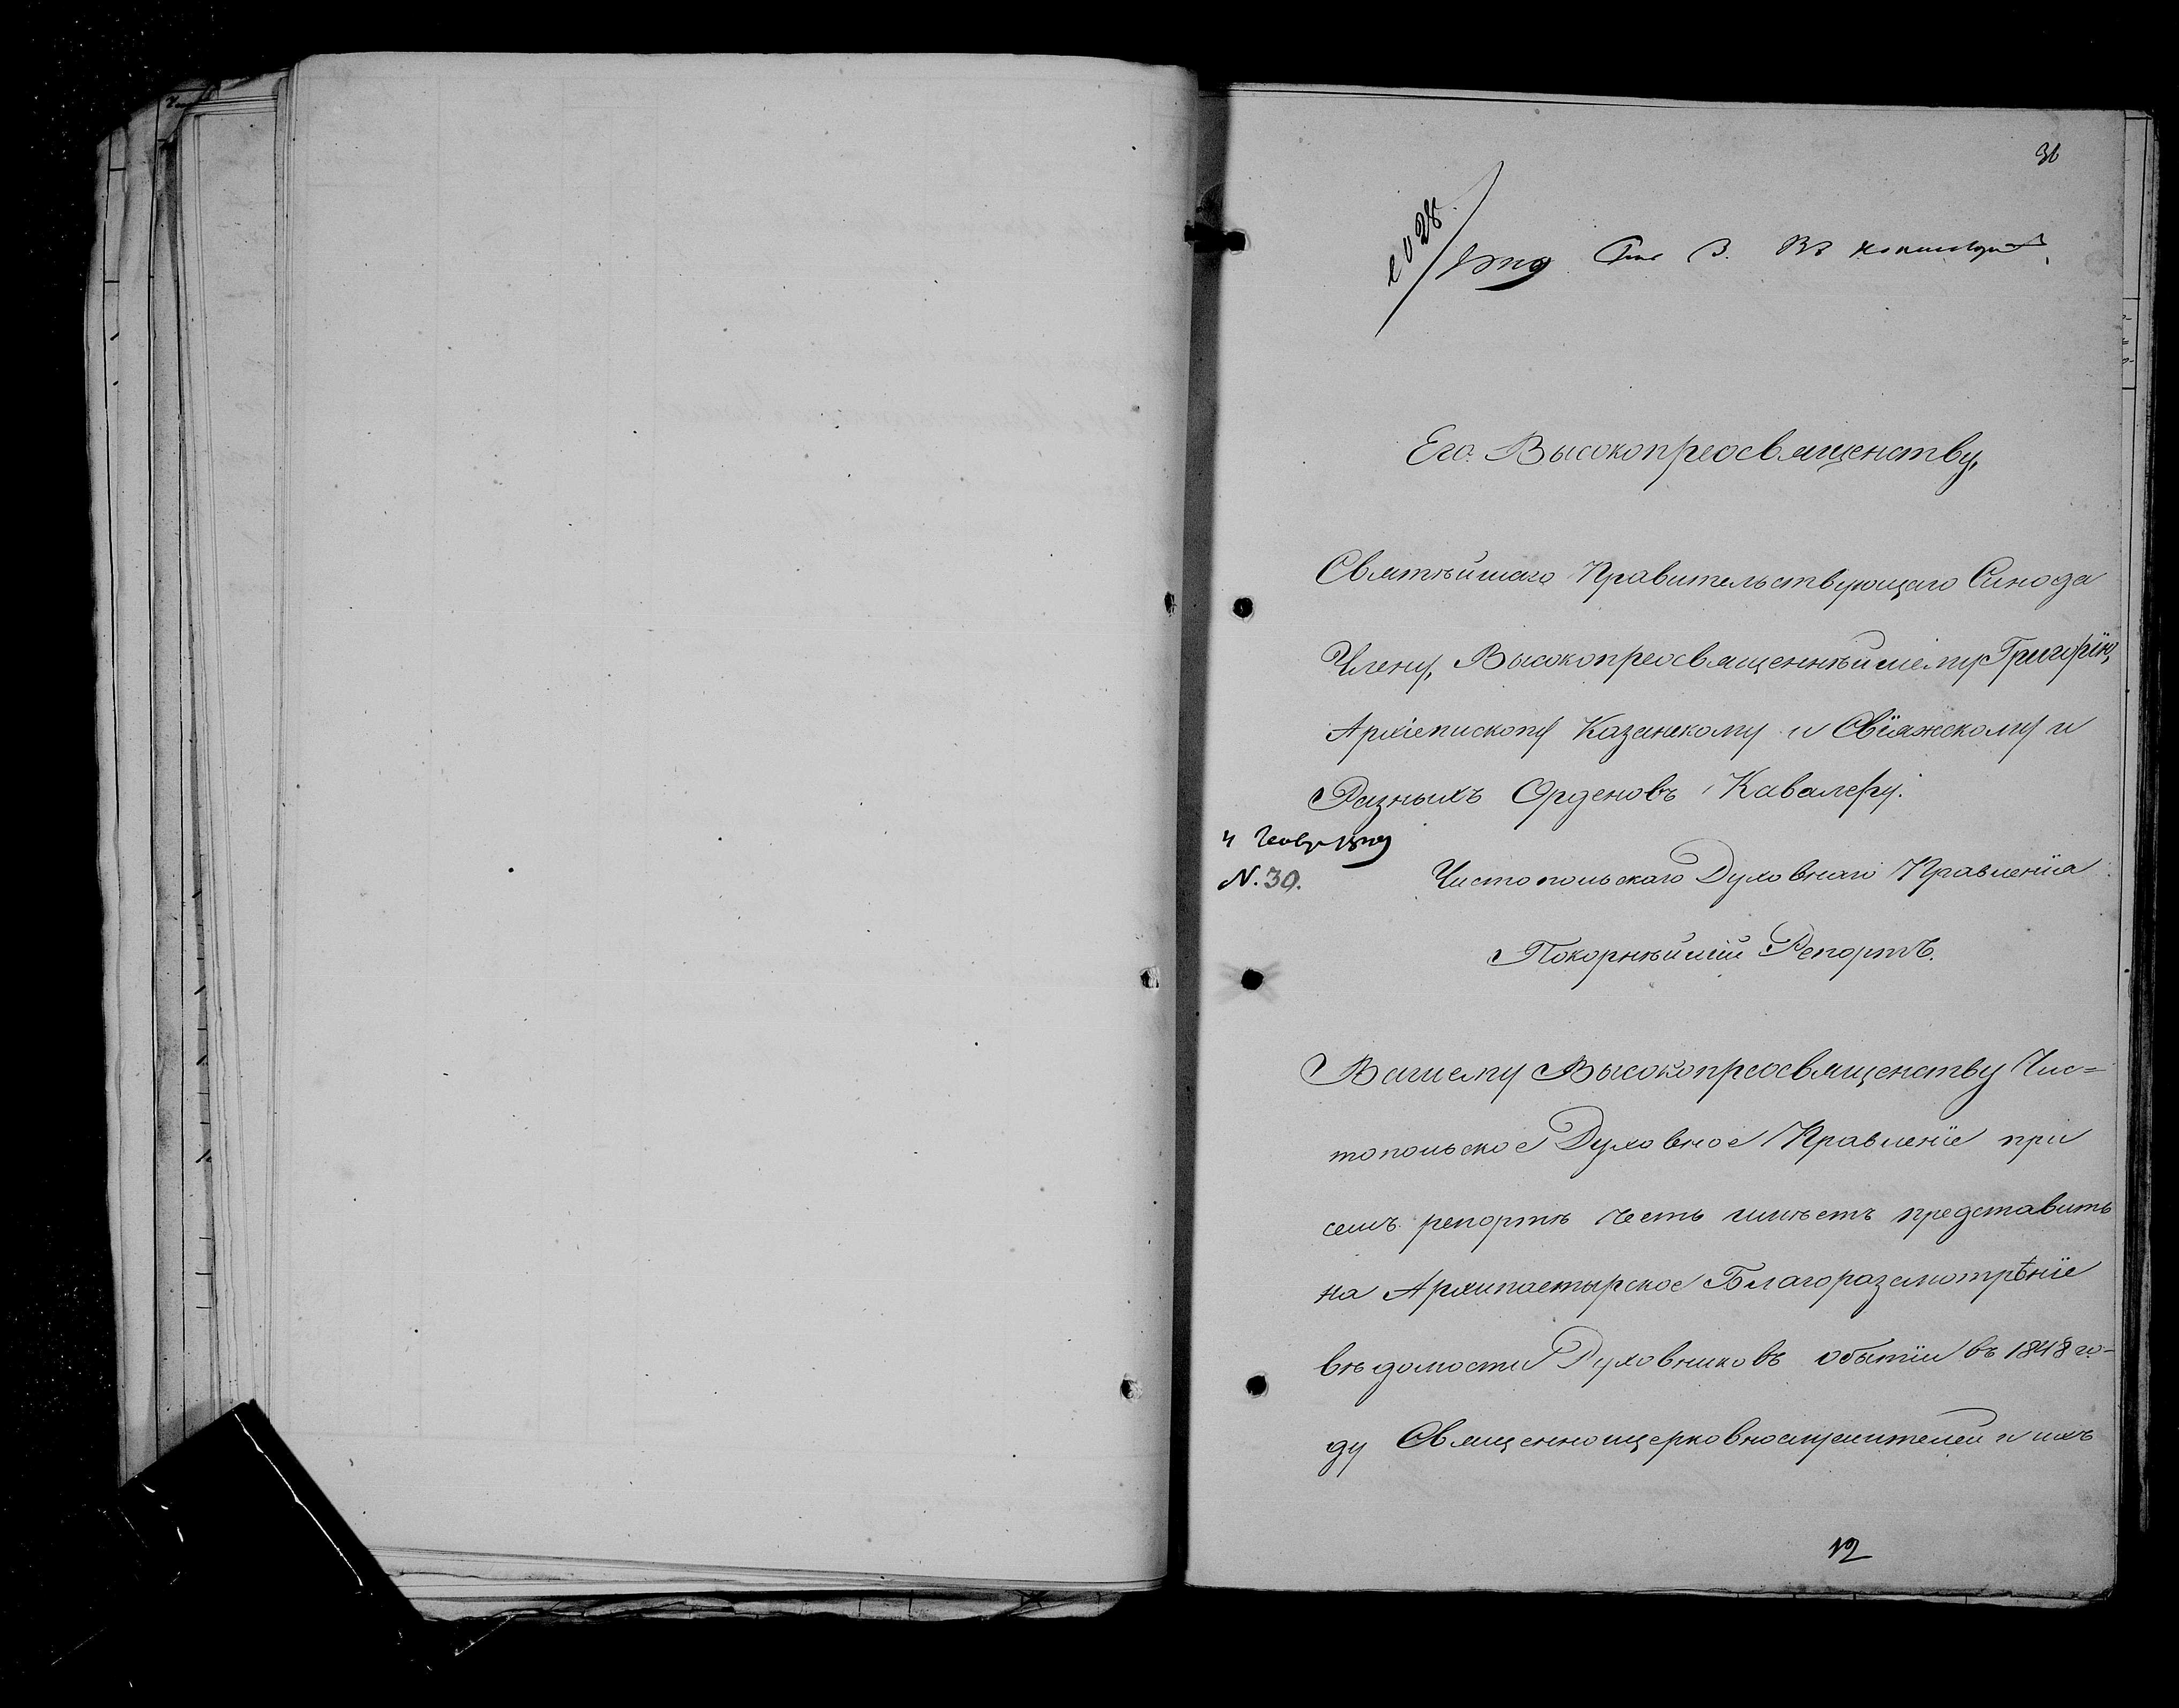 36
1849 Янв. 3. Въ консисторію
Его Высокопреосвященству,
Святѣйшаго Правительствующаго Синода
Члену, Высокопреосвященнѣйшему Григорію,
Архіепископу Казанскому и Свіяжскому и
Разныхъ Орденовъ Кавалеру.
4 Генвр 1849
N. 39.
Чистопольскаго Духовнаго Правленія
Покорнѣйшій Репортъ.
Вашему Высокопреосвященству Чис=
топольское Духовное Правленіе при
семъ репортѣ честь имѣетъ представить
на Архипастырское Благоразсмотрѣніе
вѣдомости Духовниковъ обытіи въ 1848 го-
ду Священноцерковнослужителей и ихъ
12